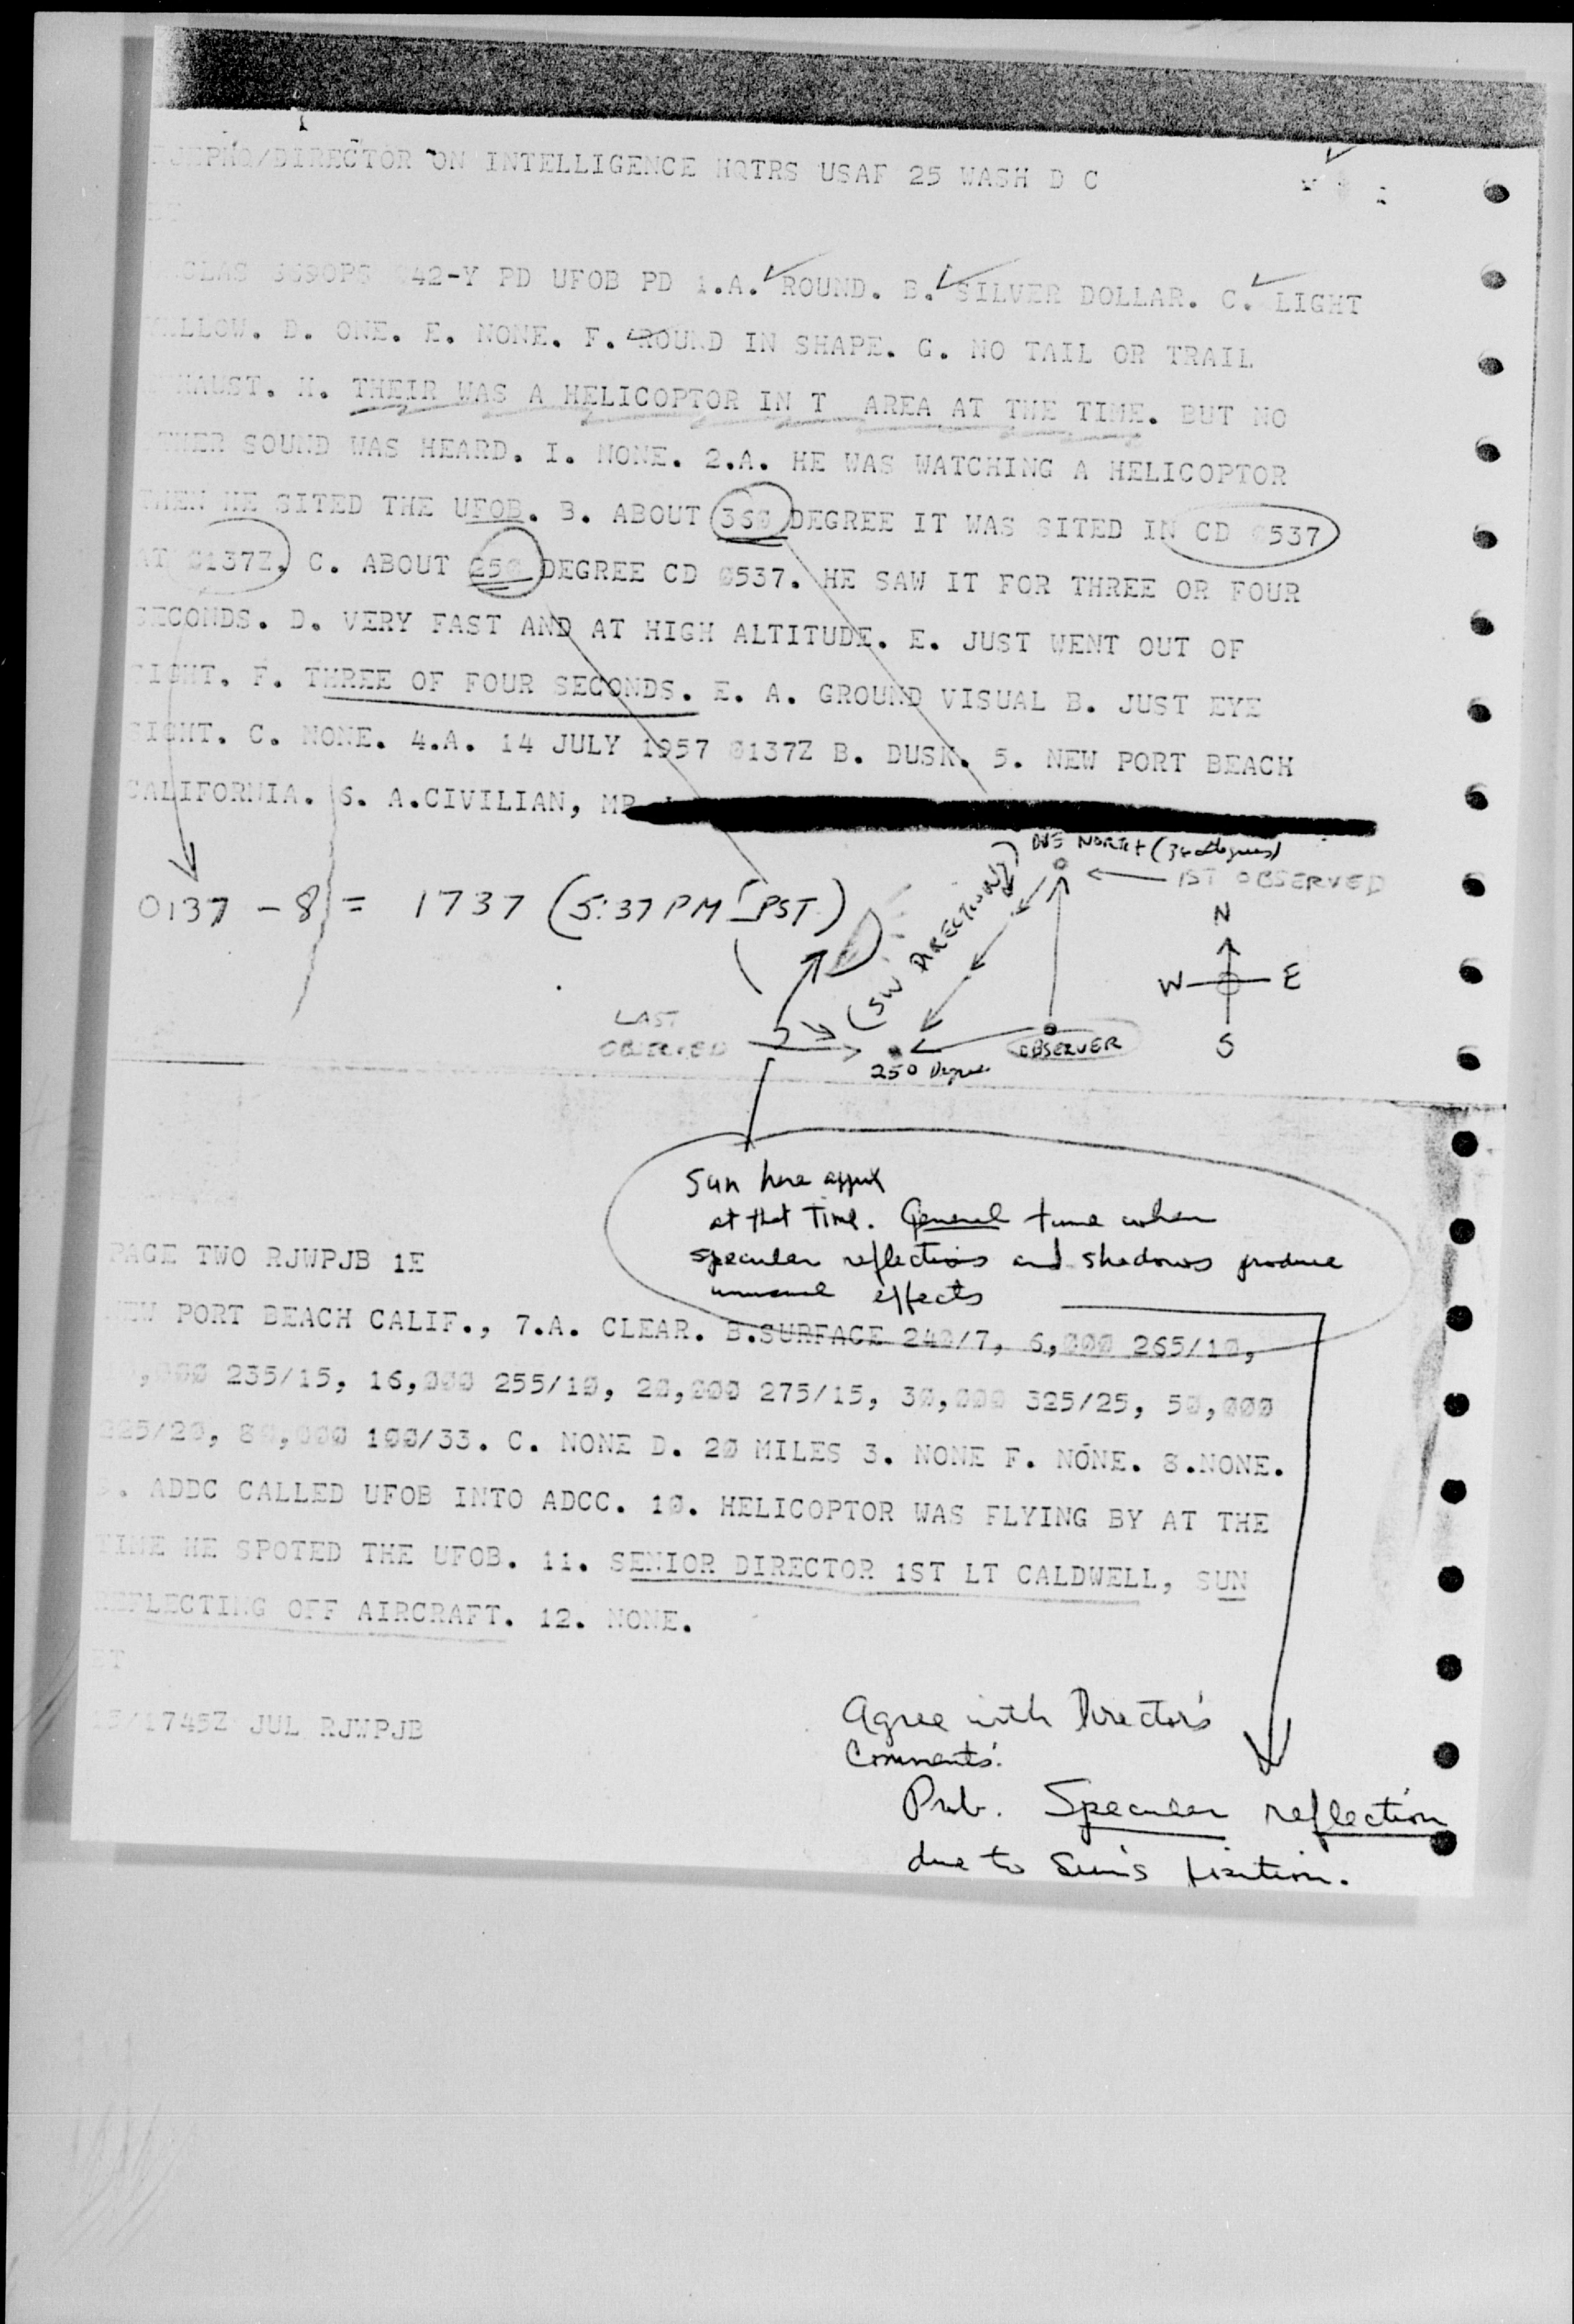 /DIRECTOR ON INTELLIGENCE HQTRS USAF 25 WASH D C
42-Y PD UFOB PD 1.A. ROUND. B. SILVER DOLLAR. C. LIGHT
LLOW. D. ONE. E. NONE. F. ROUND IN SHAPE. G. NO TAIL OR TRAIL
HAUST. H. THEIR WAS A HELICOPTOR IN T AREA AT THE TIME. BUT NO
THER SOUND WAS HEARD. I. NONE. 2.A. HE WAS WATCHING A HELICOPTOR
HEN HE SITED THE UFOB. B. ABOUT 360 DEGREE IT WAS SITED IN CD 0537
AT 0137Z. C. ABOUT 250 DEGREE CD 0537. HE SAW IT FOR THREE OR FOUR
SECONDS. D. VERY FAST AND AT HIGH ALTITUDE. E. JUST WENT OUT OF
SIGHT. F. THREE OF FOUR SECONDS. E. A. GROUND VISUAL B. JUST EYE
SIGHT. C. NONE. 4.A. 14 JULY 1957 0137Z B. DUSK. 5. NEW PORT BEACH
CALIFORNIA. 6. A.CIVILIAN, MR
DUE NORTH
1ST OBSERVED
0137 - 8 = 1737 (5:37 PM PST)
(SW DIRECTION)
N
W E
S
LAST
OBSERVED
OBSERVER
250 Degree
Sun here approx
at that Time. General time when
specular reflections and shadows produce
unusual effects
PAGE TWO RJWPJB 1E
NEW PORT BEACH CALIF., 7.A. CLEAR. B.SURFACE 240/7, 6,000 265/10,
,000 235/15, 16,000 255/10, 20,000 275/15, 30,000 325/25, 50,000
25/20, 80,000 100/33. C. NONE D. 20 MILES 3. NONE F. NONE. 8.NONE.
. ADDC CALLED UFOB INTO ADCC. 10. HELICOPTOR WAS FLYING BY AT THE
TIME HE SPOTED THE UFOB. 11. SENIOR DIRECTOR 1ST LT CALDWELL, SUN
REFLECTING OFF AIRCRAFT. 12. NONE.
BT
15/1745Z JUL RJWPJB
Agree with Director's
Comments.
Prob. Specular reflection
due to Sun's position.